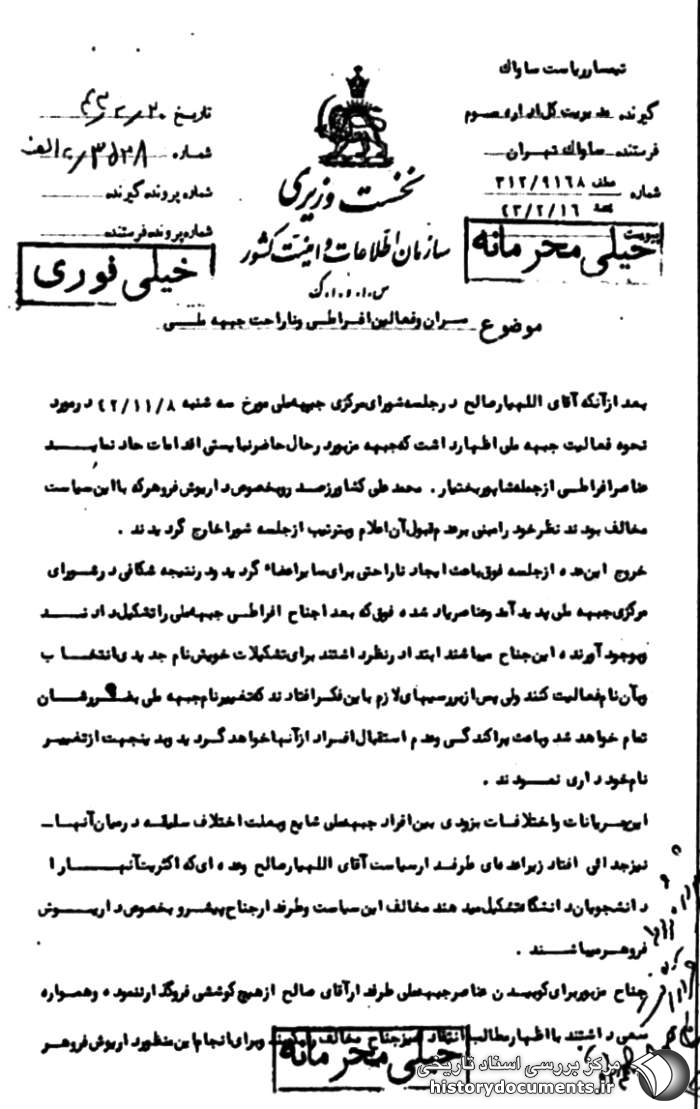 تیمسار ریاست ساواک
گیرنده مدیریت کل اداره سوم
فرستنده ساواک تهران
شماره ۳۱۲/۹۱۶۸
۴۳/۲/۱۶
پیوست
خیلی محرمانه
نخست وزیری
سازمان اطلاعات و امنیت کشور
س.ا.و.ا.ک
تاریخ ۴۳/۲/۲۰
شماره
شماره پرونده گیرنده
شماره پرونده فرستنده
خیلی فوری
موضوع سران و فعالین افراطی و ناراحت جبهه ملی
بعد از آنکه آقای اللهیار صالح در جلسه شورای مرکزی جبهه ملی مورخ سه شنبه ۴۲/۱۱/۸ در مورد
نحوه فعالیت جبهه ملی اظهار داشت که جبهه مزبور در حال حاضر نبایستی اقدامات حاد نماید
عناصر افراطی از جمله شاپور بختیار . محمد علی کشاورز صدر و بخصوص داریوش فروهر که با این سیاست
مخالف بودند نظر خود را مبنی بر عدم قبول آن اعلام و بترتیب از جلسه شورا خارج گردیدند .
خروج این عده از جلسه فوق باعث ایجاد ناراحتی برای سایر اعضاء گردید و در نتیجه شکافی در شورای
مرکزی جبهه ملی پدید آمد و عناصر یاد شده فوق که بعدا جناح افراطی جبهه ملی را تشکیل دادند
و بوجود آورنده این جناح میباشند ابتدا در نظر داشتند برای تشکیلات خویش نام جدیدی انتخاب
و بآن نام فعالیت کنند ولی پس از بررسیهای لازم باین فکر افتادند که تغییر نام جبهه ملی بضررشان
تمام خواهد شد و باعث پراکندگی و عدم استقبال افراد از آنها خواهد گردید و بدینجهت از تغییر
نام خودداری نمودند .
این جریانات و اختلافات بزودی بین افراد جبهه ملی شایع و بعلت اختلاف سلیقه در میان آنها
نیز جدائی افتاد زیرا عده‌ای طرفدار سیاست آقای اللهیار صالح و عده‌ای که اکثریت آنها را
دانشجویان دانشگاه تشکیل میدهند مخالف این سیاست و طرفدار جناح پیشرو بخصوص داریوش
فروهر میباشند .
جناح مزبور برای کوبیدن عناصر جبهه ملی طرفدار آقای صالح از هیچ کوششی فروگذار ننموده و همواره
سعی داشتند با اظهار مطالب انتقاد آمیز جناح مخالف را بکوبند و برای انجام این منظور داریوش فروهر
خیلی محرمانه
مرکز بررسی اسناد تاریخی
historydocuments.ir